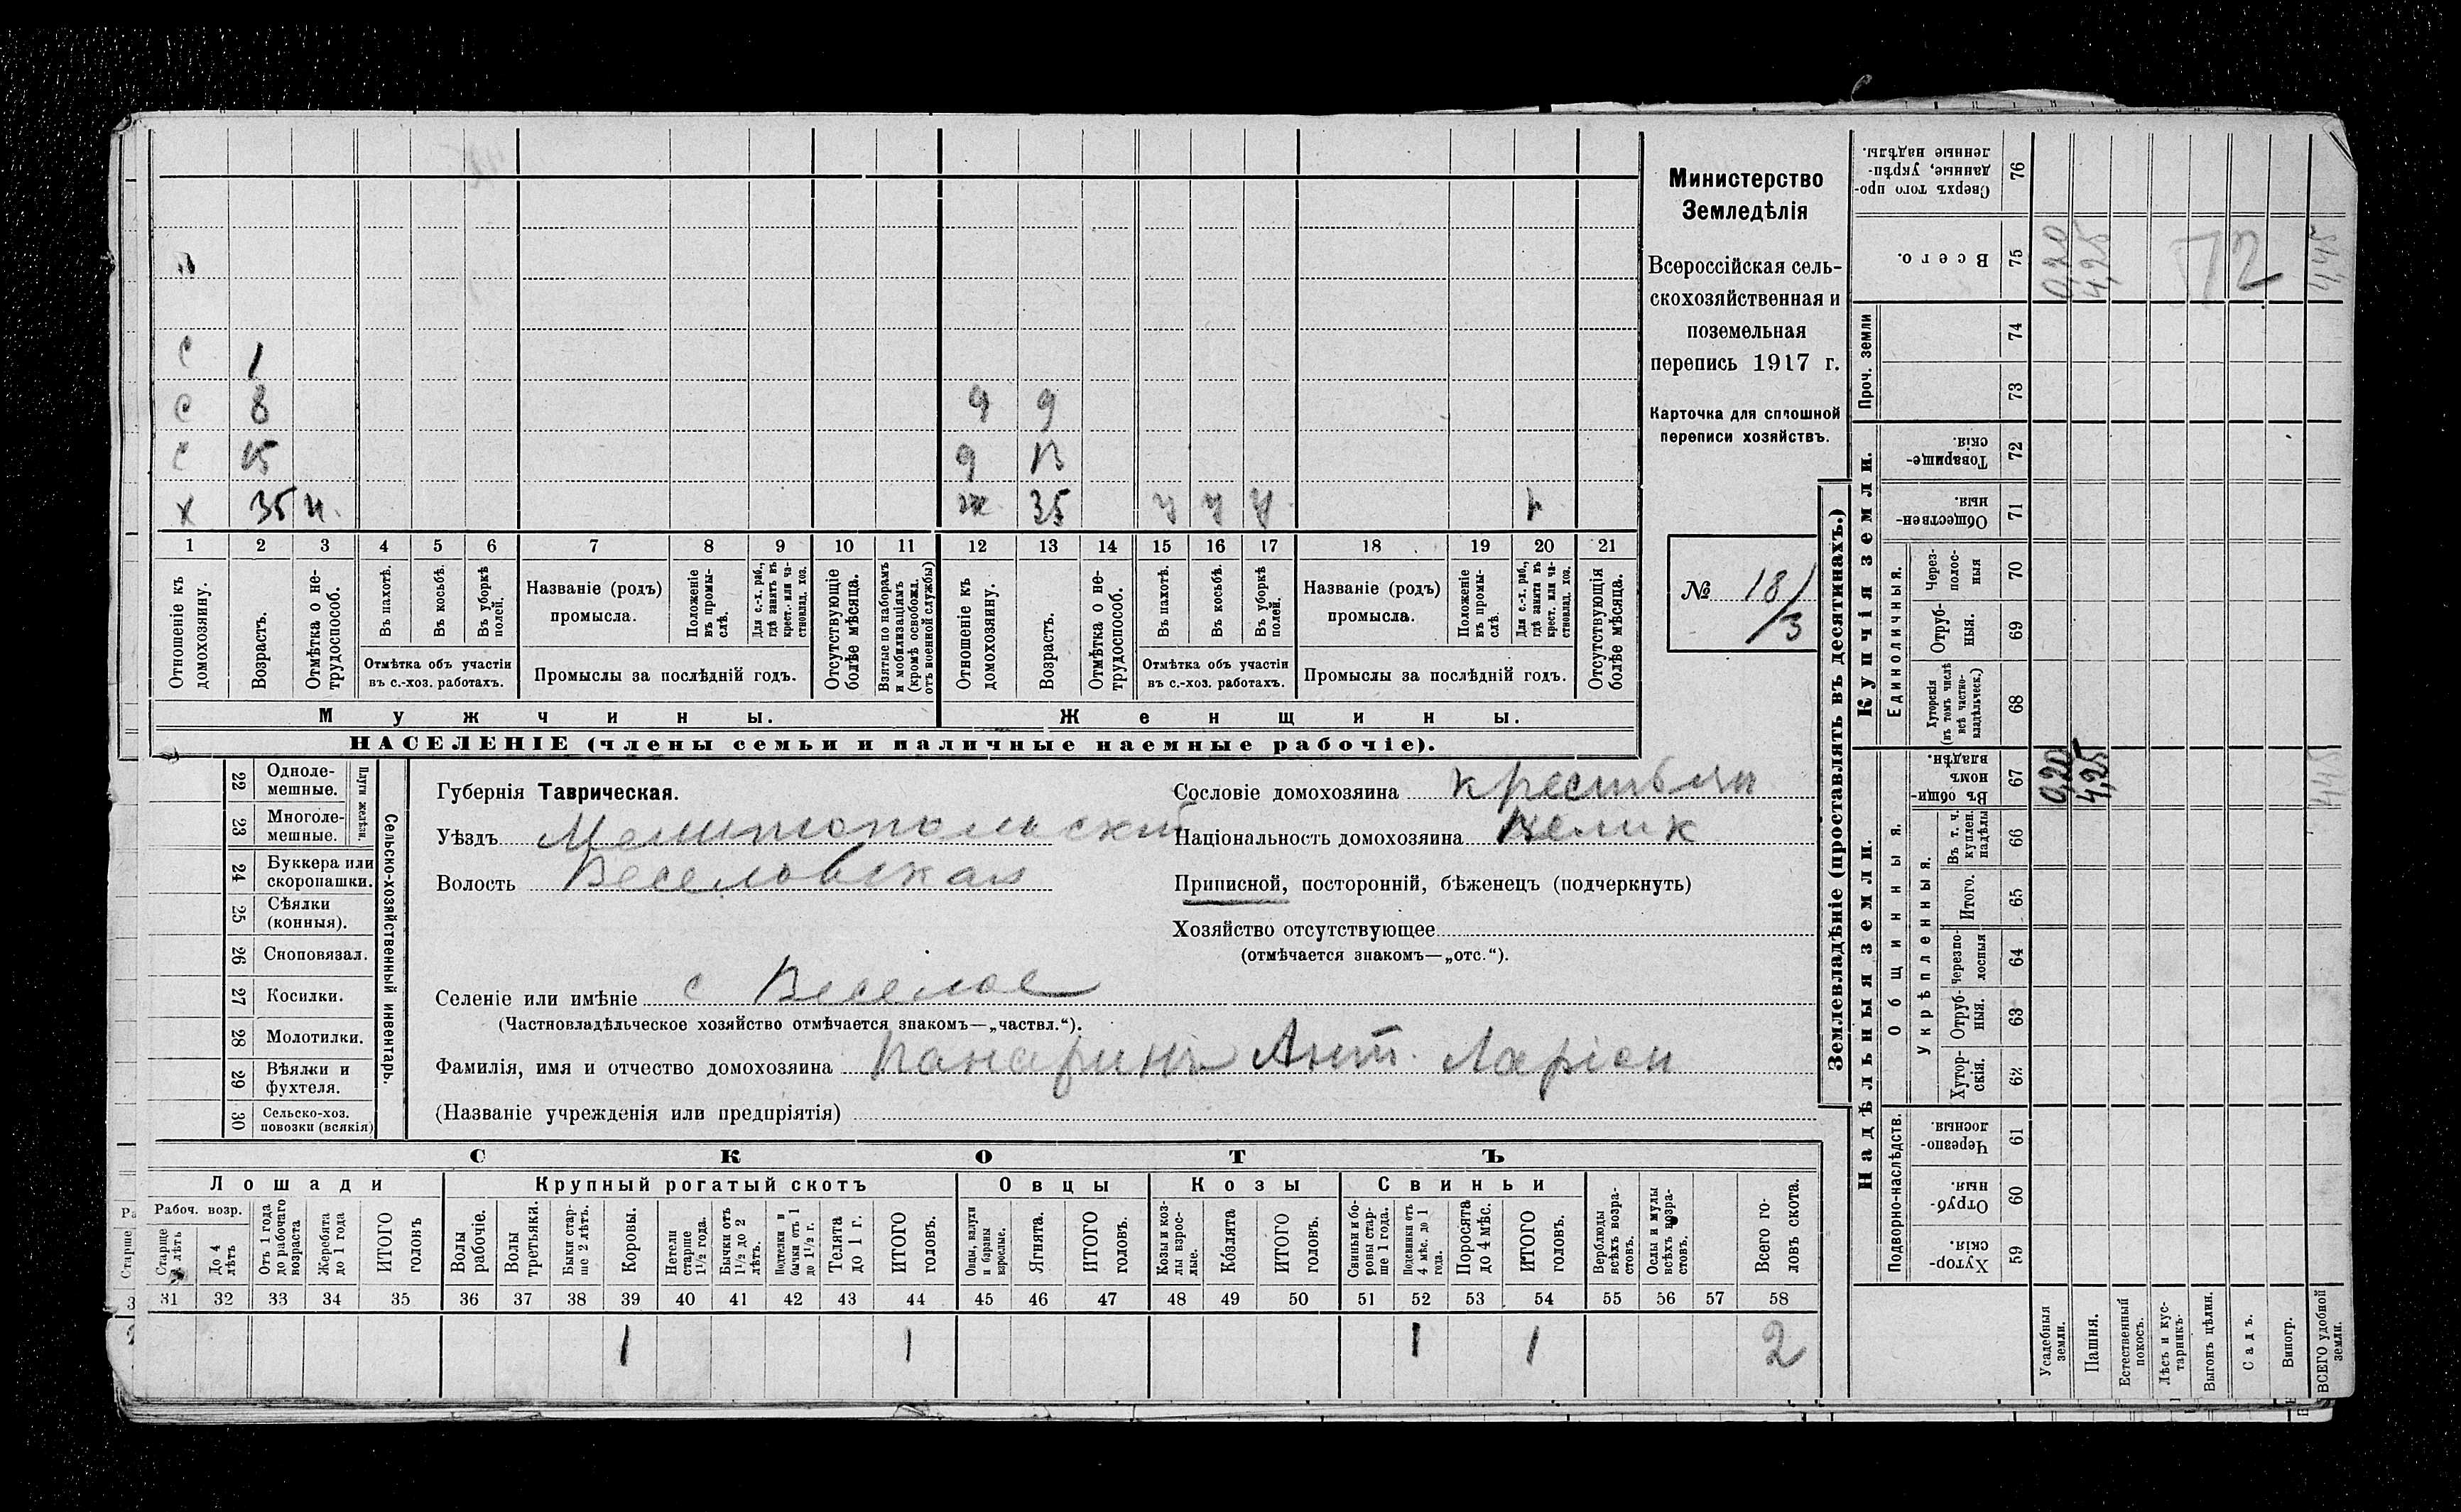 С 1
С 8 9 9
С 15 9 13
Х 35 н. ж 35 у у у
1 2 3 4 5 6 7 8 9 10 11 12 13 14 15 16 17 18 19 20 21
Отношеніе къ домохозяину.
Возрастъ.
Отмѣтка о не-
трудоспособ.
Въ пахотѣ.
Въ косьбѣ.
Въ уборкѣ полей.
Отмѣтка объ участіи
въ с.-хоз. работахъ.
Названіе (родъ)
промысла.
Положеніе въ промы-
слѣ.
Для с.-х. раб., гдѣ занятъ въ крест. или ча-
стновлад. хоз.
Промыслы за послѣдній годъ.
Отсутствующіе болѣе мѣсяца.
Взятые по наборамъ и мобилизаціямъ (кромѣ освобожд. отъ военной службы)
Отношеніе къ домохозяину.
Возрастъ.
Отмѣтка о не-
трудоспособ.
Въ пахотѣ.
Въ косьбѣ.
Въ уборкѣ полей.
Отмѣтка объ участіи
въ с.-хоз. работахъ.
Названіе (родъ)
промысла.
Положеніе въ промы-
слѣ.
Для с.-х. раб., гдѣ занята въ крест. или ча-
стновлад. хоз.
Промыслы за послѣдній годъ.
Отсутствующія болѣе мѣсяца.
Мужчины. Женщины.
НАСЕЛЕНІЕ (члены семьи и наличные наемные рабочіе).
Министерство
Земледѣлія
Всероссійская сель-
скохозяйственная и
поземельная
перепись 1917 г.
Карточка для сплошной
переписи хозяйствъ.
№ 18/3
22 Одноле-
мешные.
23 Многоле-
мешные.
Плуги желѣзн.
24 Буккера или
скоропашки.
25 Сѣялки
(конныя).
26 Сноповязал.
27 Косилки.
28 Молотилки.
29 Вѣялки и
фухтеля.
30 Сельско-хоз.
повозки (всякія)
Сельско-хозяйственный инвентарь.
Губернія Таврическая.
Уѣздъ Мелитопольскій
Волость Веселовская
Сословіе домохозяина крестьян
Національность домохозяина Велик
Приписной, посторонній, бѣженецъ (подчеркнуть)
Хозяйство отсутствующее
(отмѣчается знакомъ—„отс.“).
Селеніе или имѣніе с Веселое
(Частновладѣльческое хозяйство отмѣчается знакомъ—„частвл.“).
Фамилія, имя и отчество домохозяина Панаринъ Ант. Ларіон
(Названіе учрежденія или предпріятія)
СКОТЪ
Лошади Крупный рогатый скотъ Овцы Козы Свиньи
Рабоч. возр.
Старше лѣтъ
До 4 лѣтъ
Отъ 1 года до рабочаго возраста
Жеребята до 1 года
ИТОГО головъ
Волы рабочіе.
Волы третьяки.
Быки стар-
ше 2 лѣтъ.
Коровы.
Нетели старше 1½ года.
Бычки отъ 1½ до 2 лѣтъ.
Подтелки и бычки отъ 1 до 1½ г.
Телята до 1 г.
ИТОГО головъ.
Овцы, валухи и бараны взрослые.
Ягнята.
ИТОГО головъ.
Козы и коз-
лы взрос-
лые.
Козлята
ИТОГО головъ.
Свиньи и бо-
ровы стар-
ше 1 года.
Подсвинки отъ 4 мѣс. до 1 года.
Поросята до 4 мѣс.
ИТОГО головъ.
Верблюды всѣхъ возра-
стовъ.
Ослы и мулы всѣхъ возра-
стовъ.
Всего го-
ловъ скота.
31 32 33 34 35 36 37 38 39 40 41 42 43 44 45 46 47 48 49 50 51 52 53 54 55 56 57 58
1 1 1 1 2
Землевладѣніе (проставлять въ десятинахъ.)
Надѣльныя земли. Купчія земли. Проч. земли
Подворно-наслѣдств.
Общинныя.
Укрѣпленныя.
Единоличныя.
Сверхъ того про-
данные, укрѣп-
ленные надѣлы. 76
Всего. 75 0,20 4,25 72 4,45
74
73
Товарище-
скія. 72
Обществен-
ныя. 71
Через-
полос-
ныя 70
Отруб-
ныя. 69
Хуторскія (въ томъ числѣ всѣ частно-
владѣльческ.) 68
Въ общин-
номъ владѣн. 67 0,20 4,25 4,45
Въ т. ч. куплен. надѣлы 66
Итого. 65
Черезпо-
лосныя 64
Отруб-
ныя. 63
Хутор-
скія. 62
Черезпо-
лосныя. 61
Отруб-
ныя. 60
Хутор-
скія. 59
Усадебныя земли.
Пашня.
Естественный покосъ.
Лѣсъ и кус-
тарникъ.
Выгонъ цѣлин.
Садъ.
Виногр.
ВСЕГО удобной земли.